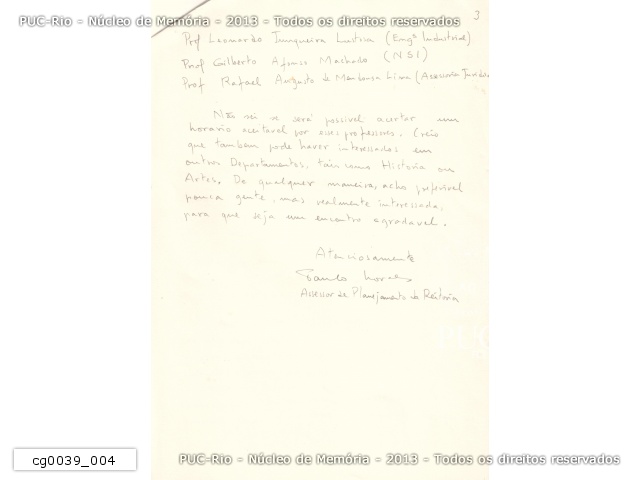 PUC-Rio - Núcleo de Memória - 2013 - Todos os direitos reservados
3
Prof Leonardo Junqueira Lustosa (Engª Industrial)
Prof Gilberto Afonso Machado (NSI)
Prof Rafael Augusto de Mendonsa Lima (Assessoria Jurídica
Não sei se será possivel acertar um
horário aceitavel por esses professores. Creio
que tambem pode haver interessados em
outros Departamentos, tais como Historia ou
Artes. De qualquer maneira, acho preferivel
pouca gente, mas realmente interessada,
para que seja um encontro agradavel.
Atenciosamente
Assessor de Planejamento da Reitoria
cg0039_004
PUC-Rio - Núcleo de Memória - 2013 - Todos os direitos reservados